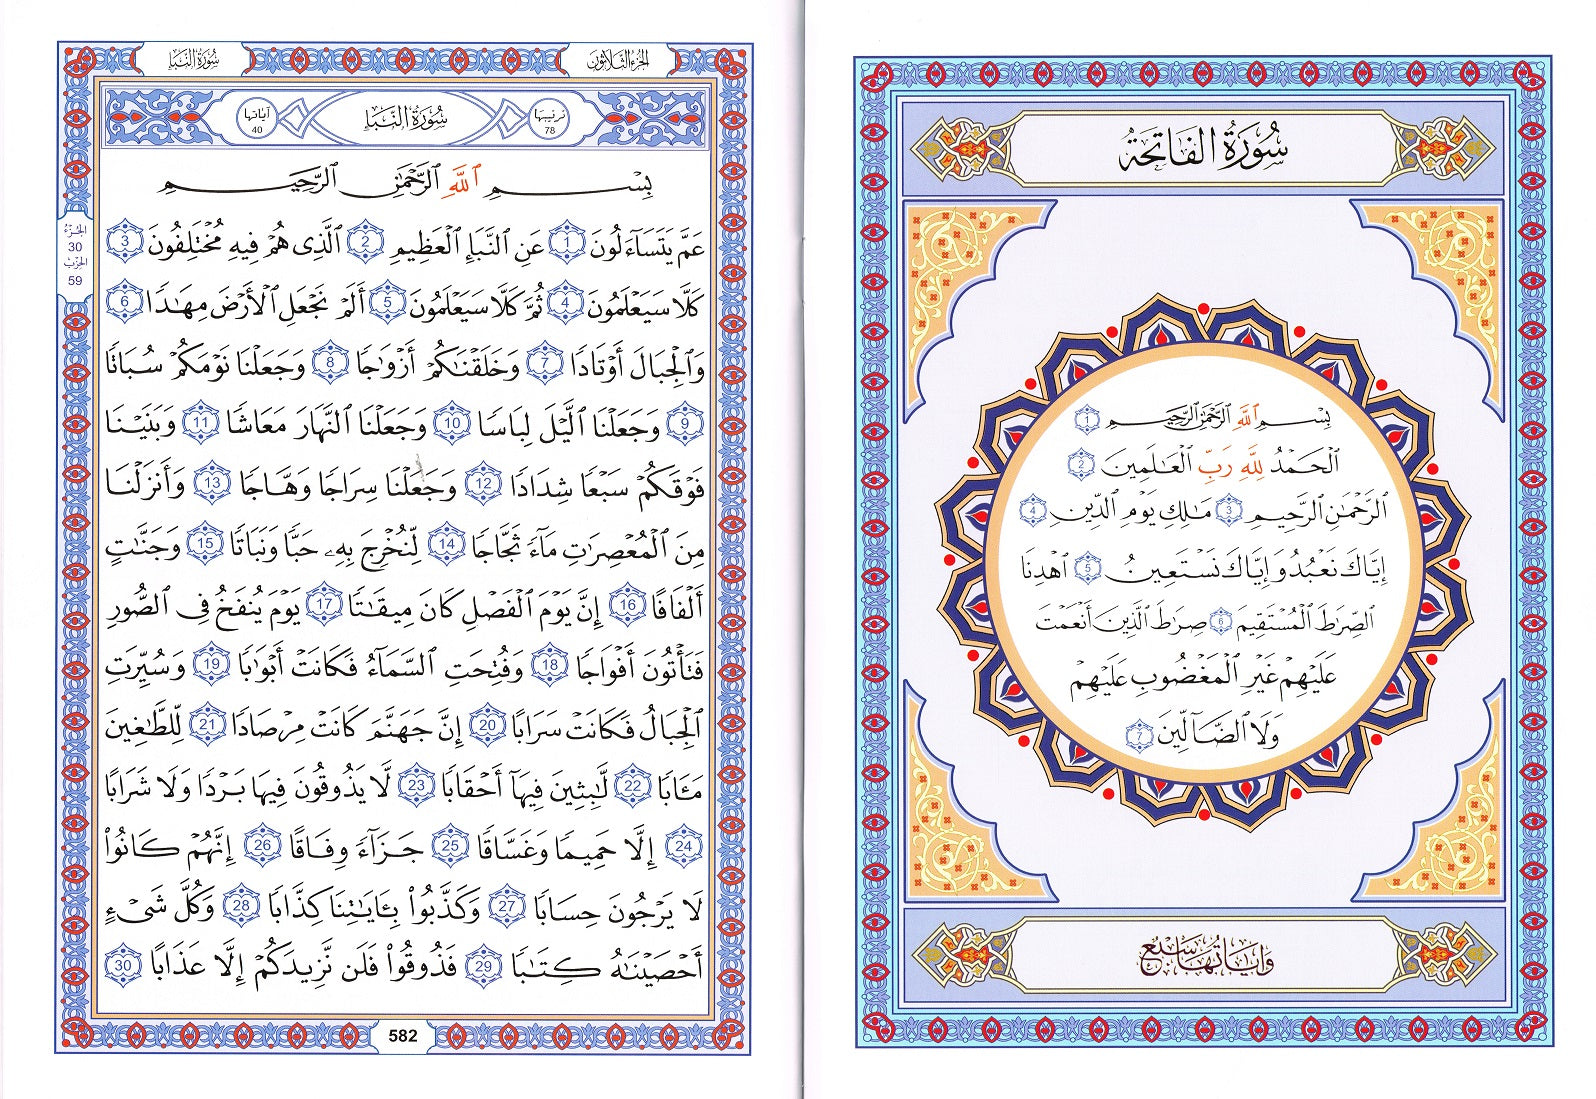 سُورَةُ الفَاتِحَةُ
بِسْمِ ٱللَّهِ ٱلرَّحْمَٰنِ ٱلرَّحِيمِ ١
ٱلْحَمْدُ لِلَّهِ رَبِّ ٱلْعَٰلَمِينَ 2
ٱلرَّحْمَٰنِ ٱلرَّحِيمِ 3 مَٰلِكِ يَوْمِ ٱلدِّينِ 4
إِيَّاكَ نَعْبُدُ وَإِيَّاكَ نَسْتَعِينُ 5 ٱهْدِنَا
ٱلصِّرَٰطَ ٱلْمُسْتَقِيمَ 6 صِرَٰطَ ٱلَّذِينَ أَنْعَمْتَ
عَلَيْهِمْ غَيْرِ ٱلْمَغْضُوبِ عَلَيْهِمْ
وَلَا ٱلضَّآلِّينَ 7
وَايَاتُهَا سَبْعٌ
الجُزءُ الثَّلَاثُونَ
سُورَةُ النَّبَأ
ترتيبها 78
سُورَةُ النَّبَأ
آياتها 40
بِسْمِ ٱللَّهِ ٱلرَّحْمَٰنِ ٱلرَّحِيمِ
عَمَّ يَتَسَآءَلُونَ 1 عَنِ ٱلنَّبَإِ ٱلْعَظِيمِ 2 ٱلَّذِى هُمْ فِيهِ مُخْتَلِفُونَ 3
كَلَّا سَيَعْلَمُونَ 4 ثُمَّ كَلَّا سَيَعْلَمُونَ 5 أَلَمْ نَجْعَلِ ٱلْأَرْضَ مِهَٰدًا 6
وَٱلْجِبَالَ أَوْتَادًا 7 وَخَلَقْنَٰكُمْ أَزْوَٰجًا 8 وَجَعَلْنَا نَوْمَكُمْ سُبَاتًا
9 وَجَعَلْنَا ٱلَّيْلَ لِبَاسًا 10 وَجَعَلْنَا ٱلنَّهَارَ مَعَاشًا 11 وَبَنَيْنَا
فَوْقَكُمْ سَبْعًا شِدَادًا 12 وَجَعَلْنَا سِرَاجًا وَهَّاجًا 13 وَأَنزَلْنَا
مِنَ ٱلْمُعْصِرَٰتِ مَآءً ثَجَّاجًا 14 لِّنُخْرِجَ بِهِۦ حَبًّا وَنَبَاتًا 15 وَجَنَّٰتٍ
أَلْفَافًا 16 إِنَّ يَوْمَ ٱلْفَصْلِ كَانَ مِيقَٰتًا 17 يَوْمَ يُنفَخُ فِى ٱلصُّورِ
فَتَأْتُونَ أَفْوَاجًا 18 وَفُتِحَتِ ٱلسَّمَآءُ فَكَانَتْ أَبْوَٰبًا 19 وَسُيِّرَتِ
ٱلْجِبَالُ فَكَانَتْ سَرَابًا 20 إِنَّ جَهَنَّمَ كَانَتْ مِرْصَادًا 21 لِّلطَّٰغِينَ
مَـَٔابًا 22 لَّٰبِثِينَ فِيهَآ أَحْقَابًا 23 لَّا يَذُوقُونَ فِيهَا بَرْدًا وَلَا شَرَابًا
24 إِلَّا حَمِيمًا وَغَسَّاقًا 25 جَزَآءً وِفَاقًا 26 إِنَّهُمْ كَانُوا۟
لَا يَرْجُونَ حِسَابًا 27 وَكَذَّبُوا۟ بِـَٔايَٰتِنَا كِذَّابًا 28 وَكُلَّ شَىْءٍ
أَحْصَيْنَٰهُ كِتَٰبًا 29 فَذُوقُوا۟ فَلَن نَّزِيدَكُمْ إِلَّا عَذَابًا 30
الجُزْءُ
30
الحِزْبُ
59
582